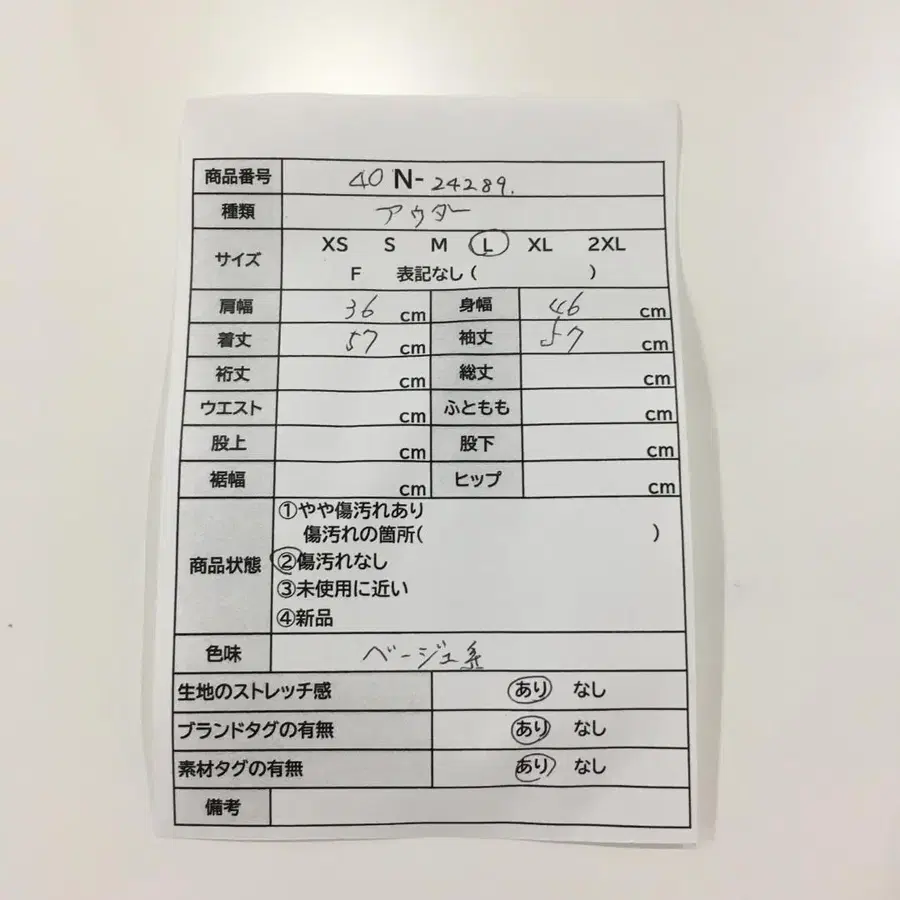 商品番号 40 N- 24289.
種類 アウター
サイズ XS S M L XL 2XL
F 表記なし( )
肩幅 36 cm 身幅 46 cm
着丈 57 cm 袖丈 57 cm
裄丈 cm 総丈 cm
ウエスト cm ふともも cm
股上 cm 股下 cm
裾幅 cm ヒップ cm
商品状態 ①やや傷汚れあり
傷汚れの箇所( )
②傷汚れなし
③未使用に近い
④新品
色味 ベージュ系
生地のストレッチ感 あり なし
ブランドタグの有無 あり なし
素材タグの有無 あり なし
備考